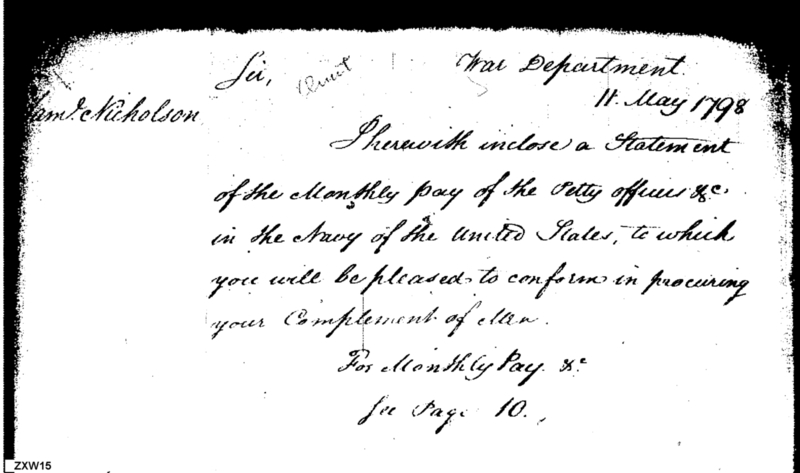 Sir,
War Department
11 May 1798
Sam.l Nicholson
I herewith inclose a Statement
of the Monthly pay of the Petty officers &c.
in the Navy of the United States, to which
you will be pleased to conform in procuring
your Complement of Men.
For Monthly Pay &c
See Page 10.
ZXW15